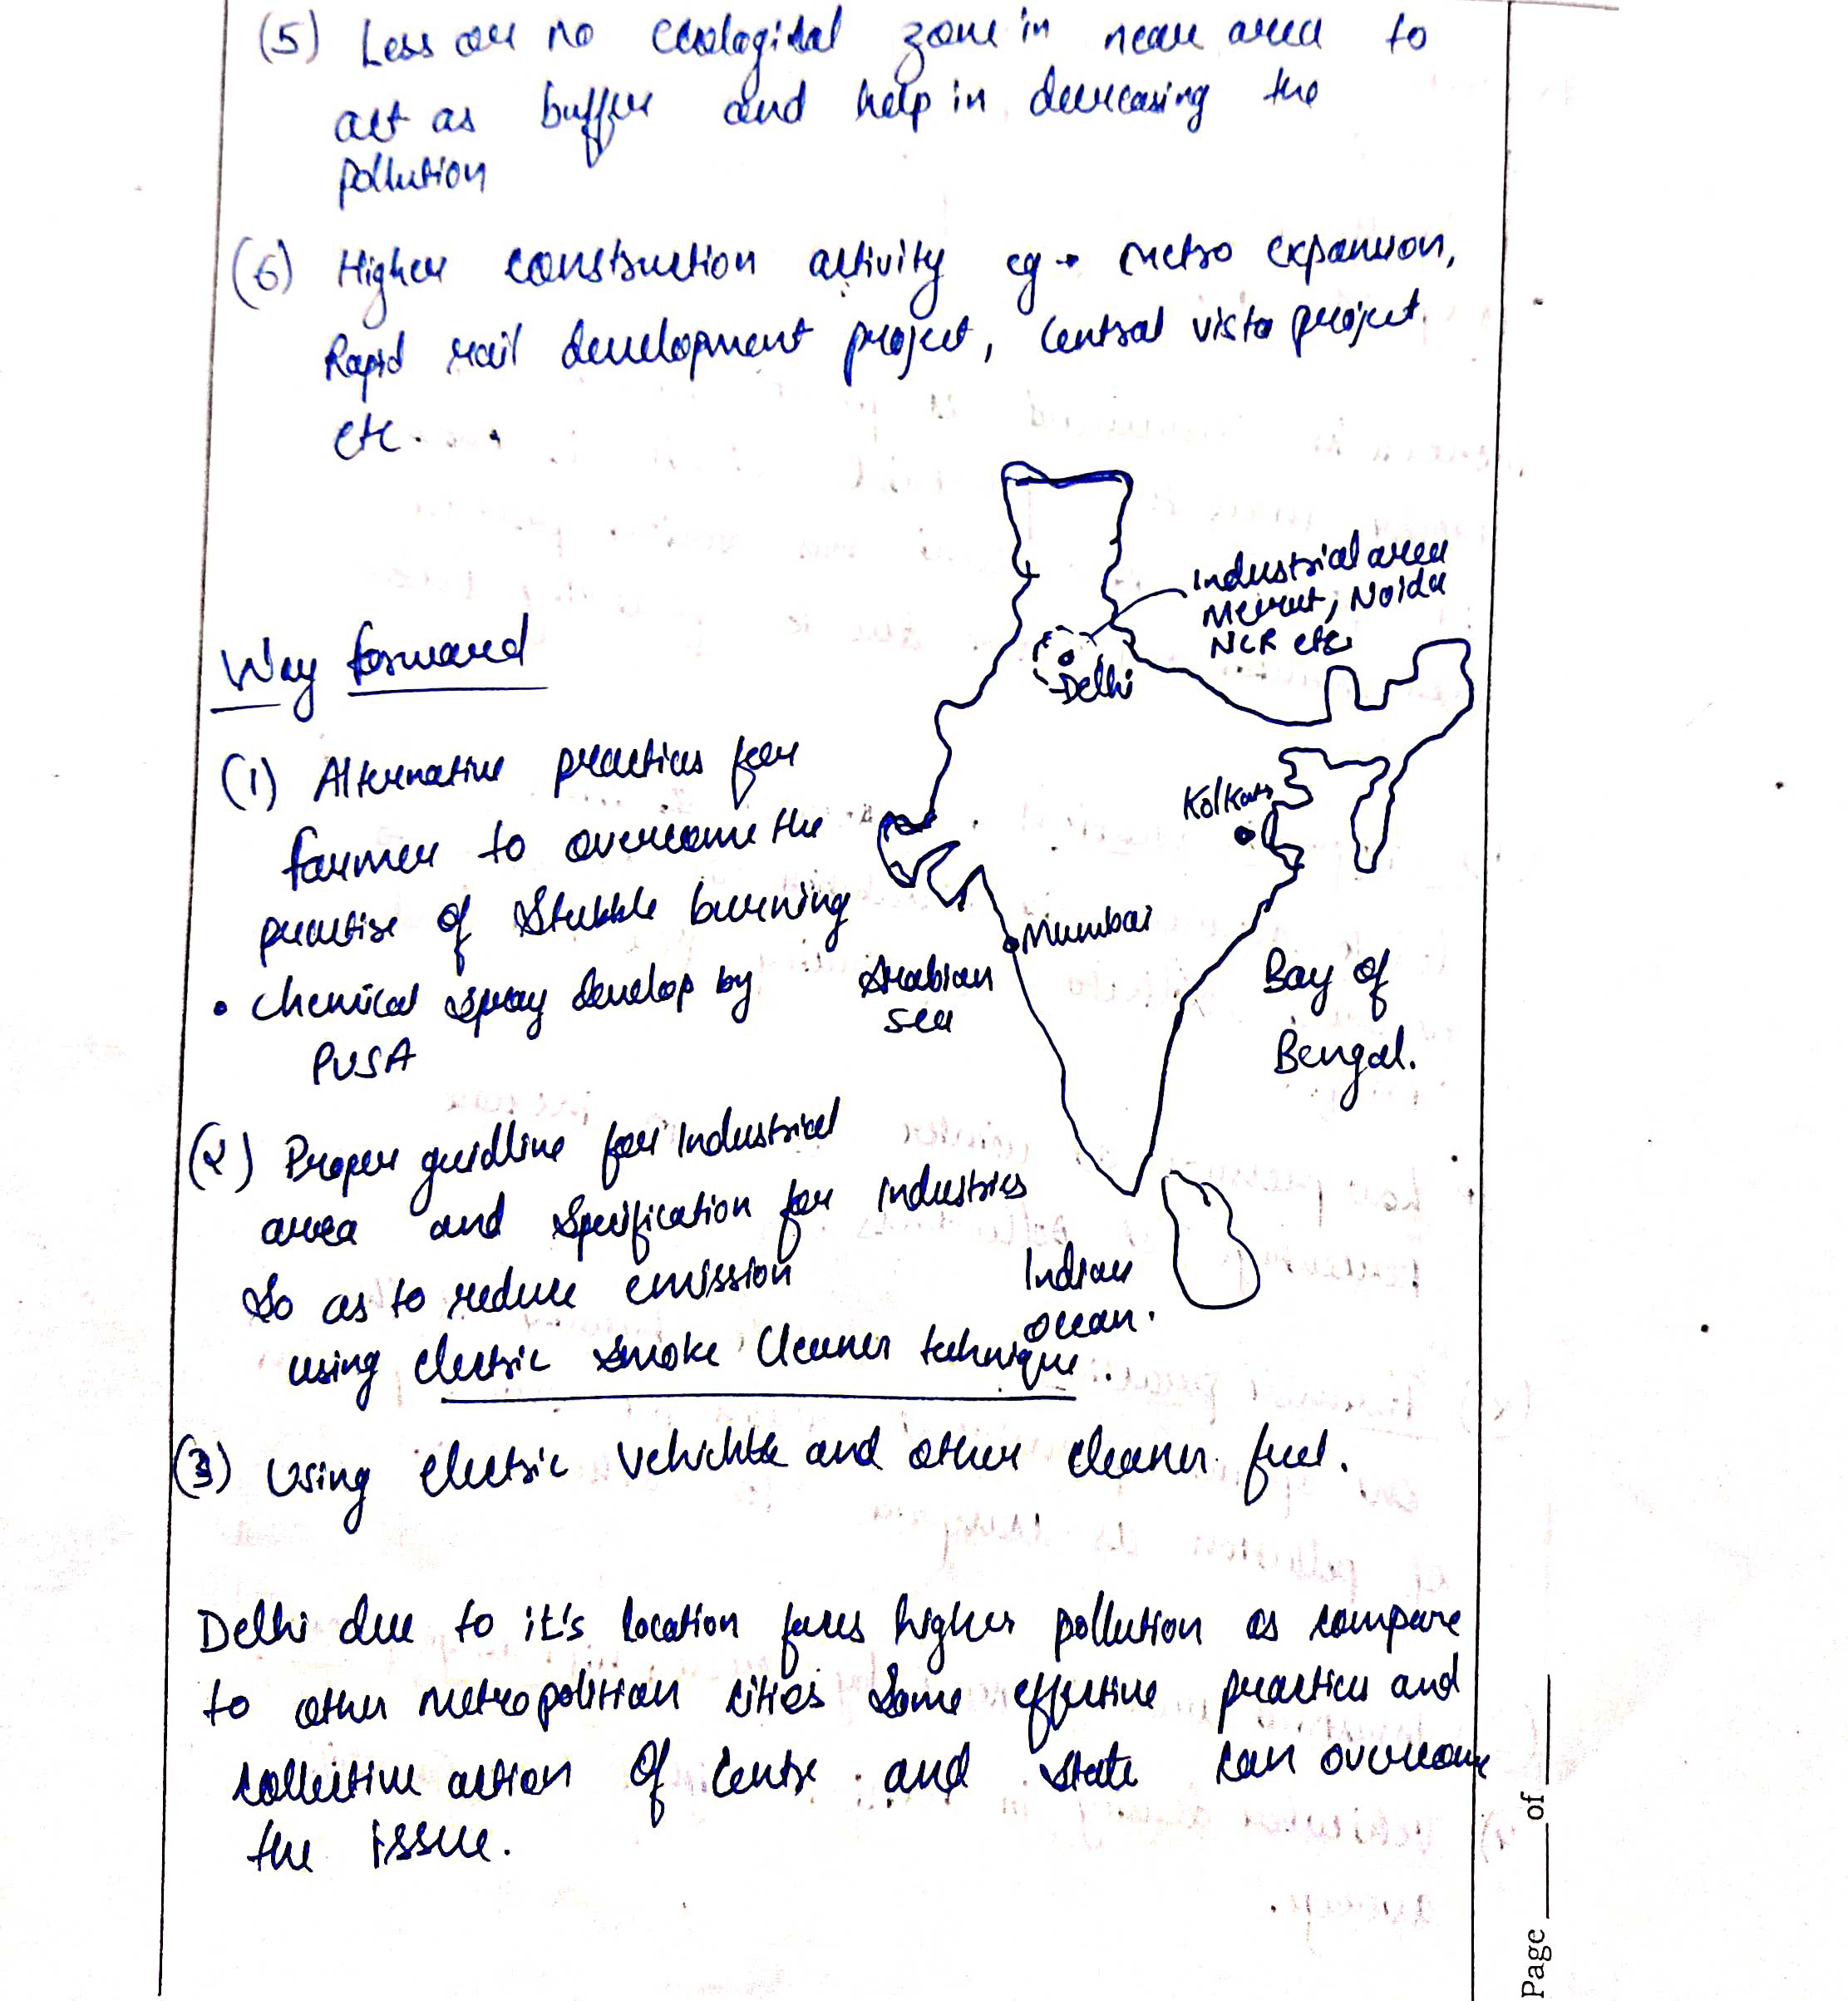 (5) Less or no ecological zone in near area to
act as buffer and help in decreasing the
pollution
(6) Higher construction activity eg → metro expansion,
Rapid rail development project, Central vista project
etc.
Industrial area
Meerut, Noida
NCR etc
Delhi
Way forward
(1) Alternative practices for
farmer to overcome the
practise of Stubble burning
• Chemical spray develop by
PUSA
Kolkata
Mumbai
Arabian
sea
Bay of
Bengal.
(2) Proper guidline for Industrial
area and Specification for industries
So as to reduce emission
using electric smoke Cleaner technique.
Indian
ocean.
(3) Using electric vehichle and other cleaner fuel.
Delhi due to it's location faces higher pollution as compare
to other metropolitian cities Some effective practices and
collective action of centre and state can overcome
the issue.
Page ___ of ___